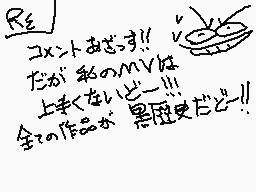 RE
コメントあざっす!!
だが 私のMVは
上手くないどー!!!
全ての作品が 黒歴史だどー!!